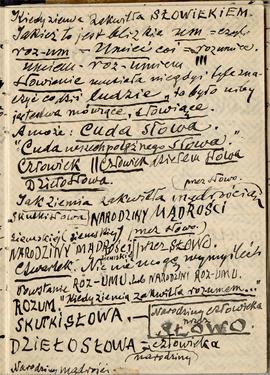 Kiedy ziemia zakwitła SŁOWIEKIEM.
Jakież to jest bliskie um — czyli
roz-um — Umieć coś — rozumieć.
umieim — roz-umiem!!!
Słowienie musiało niegdyś tyle zna-
czyć co dziś ludzie, to było niby
jestestwa mówiące, słowiące
A może: Cuda słowa.
"Cuda wszechpotężnego słowa."
Człowiek || Człowiek dziełem słowa
Dzieło słowa. (przez słowo.
Jak ziemia zakwitła mądrością
(skutki słowa) NARODZINY MĄDROŚCI
ziemskiej (ziemskiej) (przez słowo)
NARODZINY MĄDROŚCI przez SŁOWO.
Czwartek. Nie mogę wymyśleć
Powstanie ROZ-UMU. lub NARODZINY ROZ-UMU.
ROZUM. "Kiedy ziemia zakwitła rozumem..."
SKUTKI SŁOWA. — Narodziny człowieka
przez
SŁOWO.
DZIEŁO SŁOWA — człowieka
narodziny
Narodziny mądrości